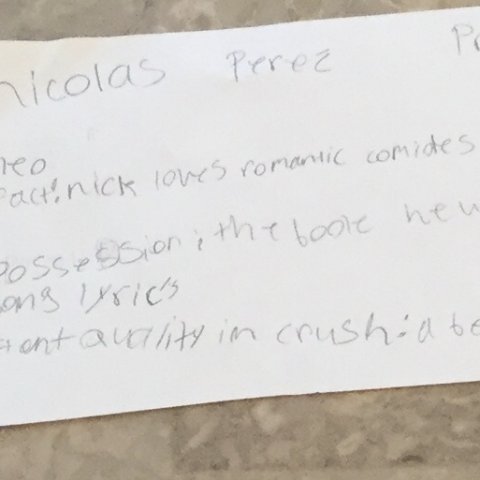 nicolas Perez
fact: nick loves romantic comides
possession: the book
song lyrics
quality in crush: a